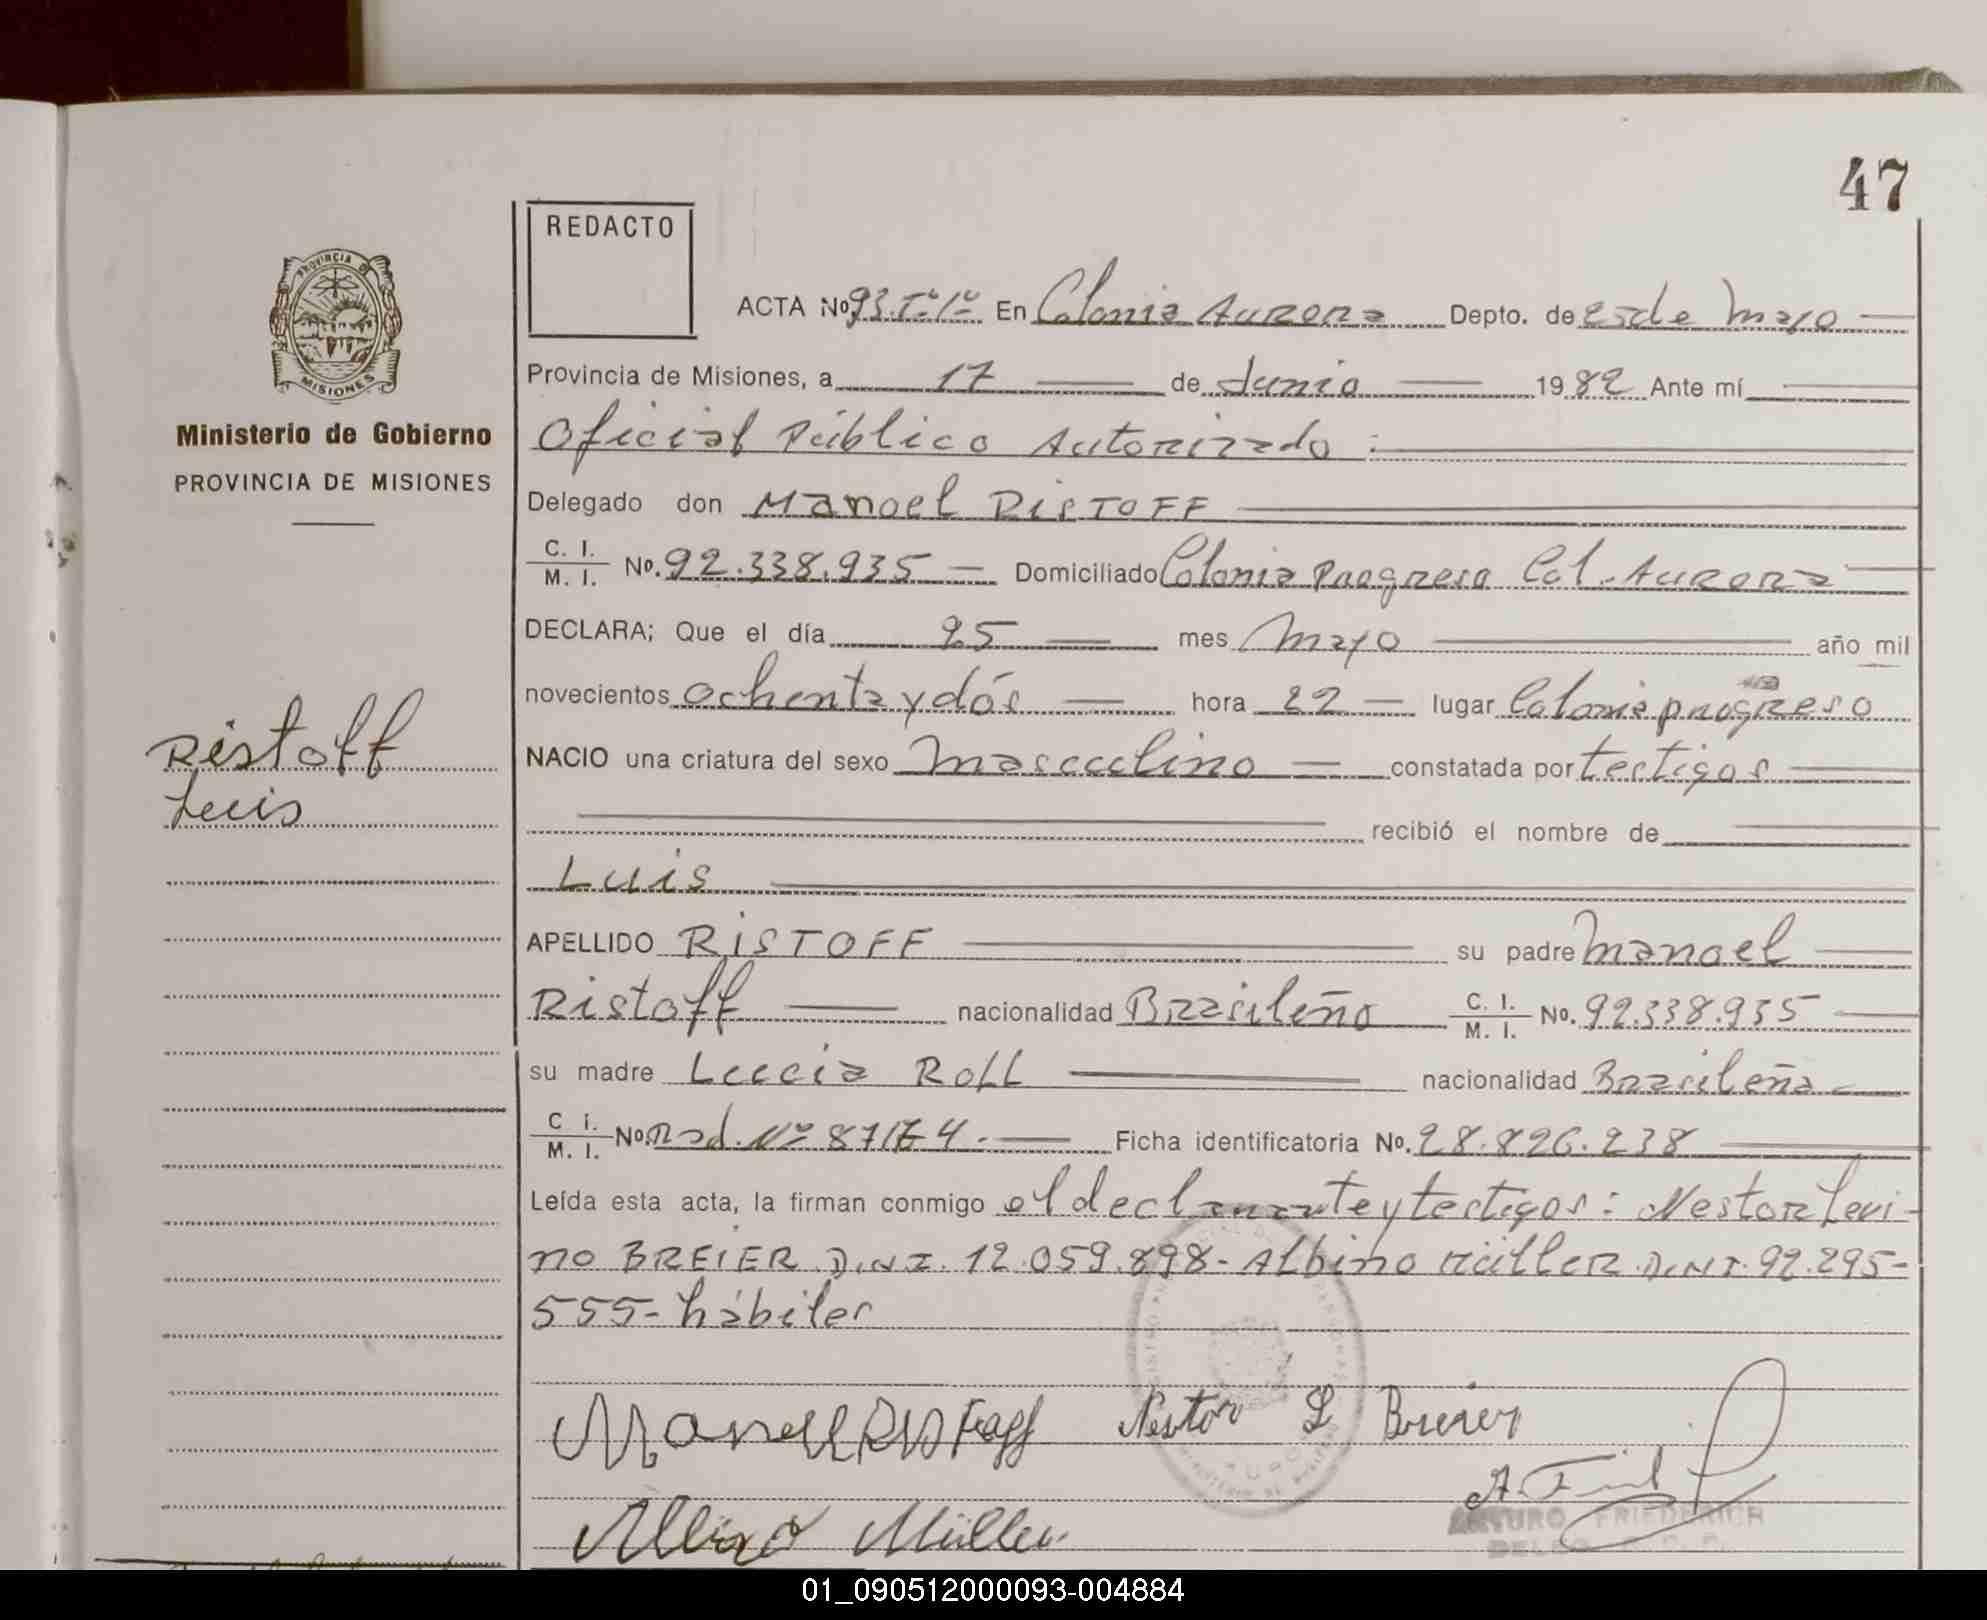 47
REDACTO
PROVINCIA DE
MISIONES
Ministerio de Gobierno
PROVINCIA DE MISIONES
ACTA No 93.Tº1º En Colonia Aurora Depto. de 25 de Mayo
Provincia de Misiones, a 17 de Junio 1982 Ante mí
Oficial Público Autorizado:
Delegado don Manoel RISTOFF
C. I. / M. I. No. 92.338.935 Domiciliado Colonia Progreso Col. Aurora
DECLARA; Que el día 25 mes Mayo año mil
novecientos ochenta y dós hora 22 lugar Colonia progreso
Ristoff
NACIO una criatura del sexo Masculino constatada por testigos
Luis
recibió el nombre de
Luis
APELLIDO RISTOFF su padre Manoel
Ristoff nacionalidad Brasileño C. I. / M. I. No. 92.338.935
su madre Lucia Roll nacionalidad Brasileña
C I. / M. I. No. Rad. Nº 87174. Ficha identificatoria No. 28.826.238
Leída esta acta, la firman conmigo el declarante y testigos: Nestor Levi-
no BREIER D.N.I. 12.059.898- Albino Müller D.N.I. 92.295-
555- hábiles
Manoel Ristoff Nestor L Breier
Albino Müller
ARTURO FRIEDERICH
01_090512000093-004884